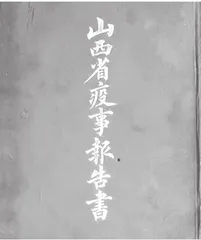 山西省疫事報告書